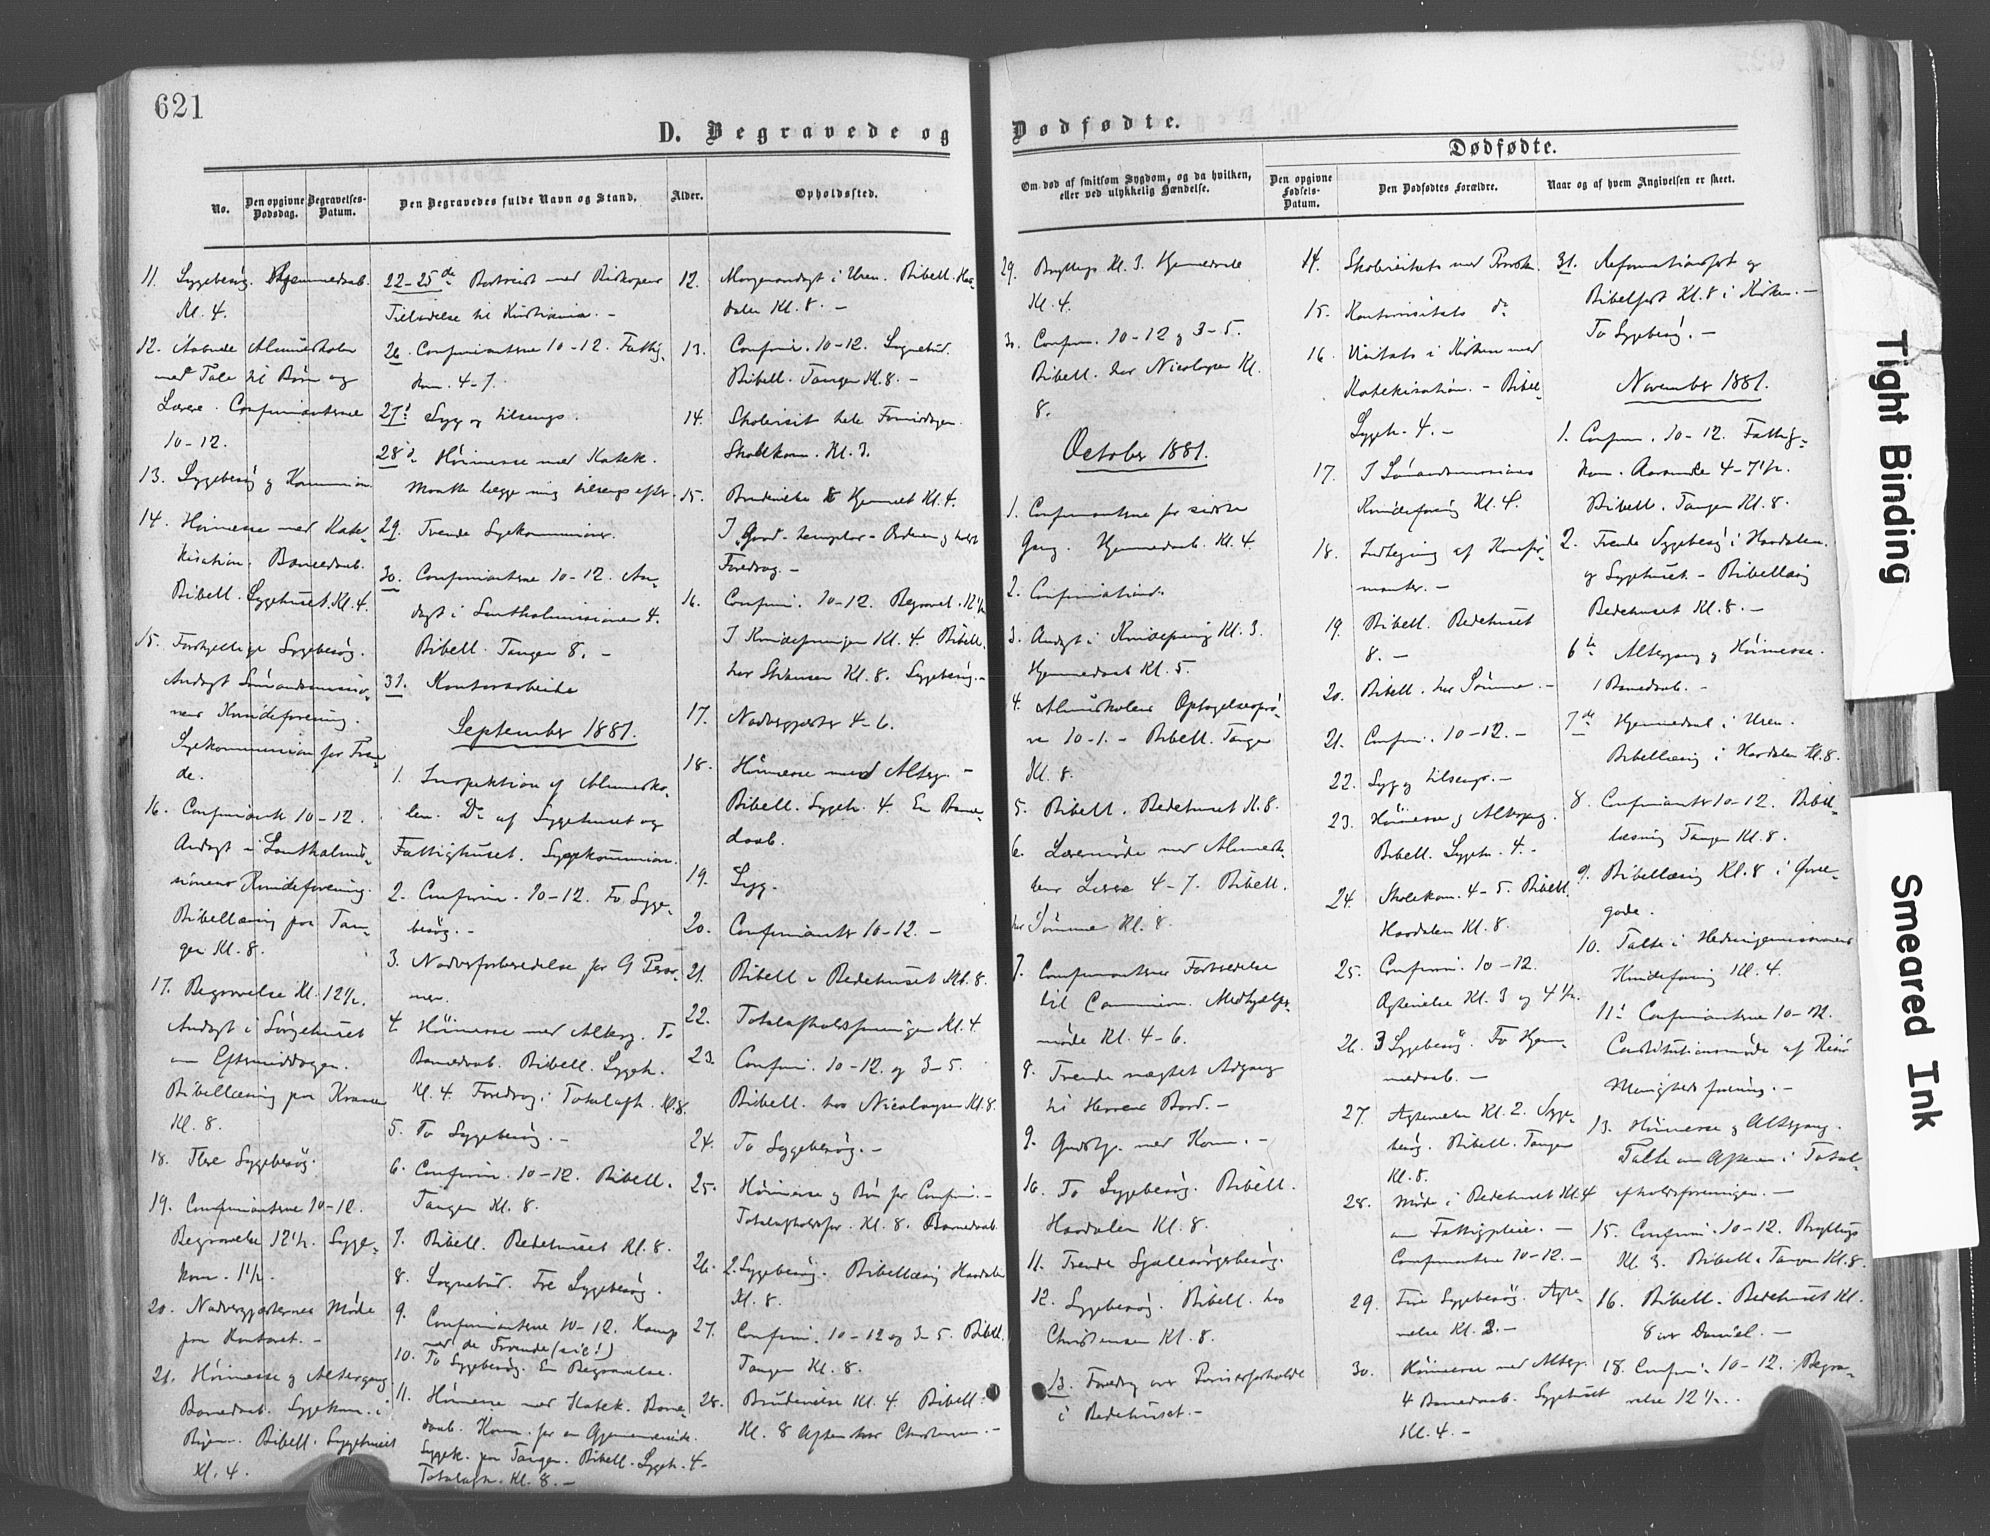 621
D. Begravede og
Dødfødte.
Dødfødte.
No.
Den opgivne Dødsdag.
Begravelses-Datum.
Den Begravedes fulde Navn og Stand.
Alder.
Opholdssted.
Om død af smitsom Sygdom, og da hvilken, eller ved ulykkelig Hændelse.
Den opgivne Fødsels-Datum.
Den Dødfødtes Forældre.
Naar og af hvem Angivelsen er skeet.
11. Sygebesøg. Hjemmedaab.
Kl. 4.
12. Aabnede Almueskolen
med Tale til Børn og
Lærere. Confirmanterne
10-12.
13. Sygebesøg og Kommunion
14. Høimesse med Kate-
kisation. Barnedaab.
Bibell. Sygehuset. Kl. 4.
15. Forskjellige Sygebesøg.
Andagt Sømandsmissio-
nens Kvindeforening.
Sygekommunion for Tren-
de.
16. Confirmant. 10-12.
Andagt i Santhalmis-
sionens Kvindeforening.
Bibellæsning paa Tan-
gen Kl. 8.
17. Begravelse Kl. 12½.
Andagt i Sygehuset
om Eftermiddagen.
Bibellæsning paa
Kl. 8.
18. Flere Sygebesøg.
19. Confirmanterne 10-12.
Begravelse 12½. Syge-
kom. 1½.
20. Nadvergjæsternes Møde
paa Kontoret. -
21. Høimesse og Altergang
Barnedaab. Sygekom. i
Byen. Bibell. Sygehuset
Kl. 4.
22-25de Bortreist med Biskopens
Tilladelse til Kristiania. -
26. Confirmanterne 10-12. Fattig-
kom. 4-7.
27d Syg og tilsengs.
28d Høimesse med Katek.
Maatte lægge mig tilsengs efter.
29. Trende Sygekommunioner.
30. Confirmanterne 10-12. An-
dagt i Santhalmissionen 4.
Bibell. Tangen 8. -
31. Kontorarbeide
September 1881.
1. Inspektion af Almuesko-
len. Do af Sygehuset og
Fattighuset. Sygekommunion.
2. Confirm. 10-12. To Syge-
besøg. -
3. Nadverforberedelse for 9 Perso-
ner.
4. Høimesse med Alterg. To
Barnedaab. Bibell. Sygeh.
Kl. 4. Foredrag i Totalafh. Kl. 8.
5. To Sygebesøg. -
6. Confirm. 10-12. Bibell.
Tangen Kl. 8.
7. Bibell. Bedehuset Kl. 8.
8. Sognebud. Tre Sygebesøg.
9. Confirmanterne 10-12. Kamp
med de Troende (sic!)
10. To Sygebesøg. En Begravelse.
11. Høimesse med Katek. Barne-
daab. Kom. for en
Sygek. paa Tangen. Bibell. Sygeh. 4-
Totalafh. Kl. 8. -
12. Morgenandagt i Uren. Bibell. Haa-
dalen Kl. 8. -
13. Confirm. 10-12. Sognebud.
Bibell. Tangen Kl. 8. -
14. Skolevisit hele Formiddagen.
Skolekom. Kl. 3.
15. Brudevielse i Hjemmet Kl. 4.
I Good-templar-Ordenen og holdt
Foredrag. -
16. Confirm. 10-12. Begravel. 12½
I Kvindeforeningen Kl. 4. Bibell.
hos Kl. 8. Sygebesøg. -
17. Nadvergjæster 4-6.
18. Høimesse med Alterg. -
Bibell. Sygeh. 4. En Barne-
daab.
19. Syg.
20. Confirmanter 10-12. -
21. Bibell. i Bedehuset Kl. 8.
22. Totalafholdsforeningen Kl. 4
23. Confirm. 10-12 og 3-5.
Bibell. hos Nicolaysen Kl. 8.
24. To Sygebesøg. -
25. Høimesse og Bøn for Confirm. -
Totalafholdsfor. Kl. 8. Barnedaab
26. 2 Sygebesøg. Bibellæsning Haadalen
Kl. 8.
27. Confirm. 10-12 og 3-5. Bibell.
Tangen Kl. 8.
28. Brudevielse Kl. 4. Bibell.
Kl. 8 Aften hos Christensen. -
29. Bryllup Kl. 3. Hjemmedaab
Kl. 4.
30. Confirm. 10-12 og 3-5.
Bibell. hos Nicolaysen Kl.
8.
October 1881.
1. Confirmanterne for sidste
Gang. Hjemmedaab. Kl. 4.
2. Confirmation.
3. Andagt i Kvindeforening Kl. 3.
Hjemmedaab Kl. 5.
4. Almueskolens Optagelsesprø-
ve 10-1. - Bibell. Tangen
Kl. 8.
5. Bibell. Bedehuset Kl. 8.
6. Læremøde med Almuesk-
lens Lærere 4-7. Bibell.
hos Tømme Kl. 8.
7. Confirmanternes Forberedelse
til Communion. Medhjælper-
møde Kl. 4-6.
8. Trende nægtet Adgang
til Herrens Bord. -
9. Gudstj. med Kom. -
10. To Sygebesøg. Bibell.
Haadalen Kl. 8.
11. Trende Sjælesørgebesøg.
12. Sygebesøg. Bibell. hos
Christensen Kl. 8.
13. Foredrag over
i Bedehuset. -
14. Skolevisitats med Provsten
15. Kontorvisitats do
16. Visitats i Kirken med
Katekisation. - Bibell.
Sygeh. 4. -
17. I Sømandsmissions
Kvindeforening Kl. 4.
18. Indtegning af Konfir-
manter. -
19. Bibell. Bedehuset
8. -
20. Bibell. hos Tømme. -
21. Confirm. 10-12. -
22. Syg og tilsengs. -
23. Høimesse og Altergang.
Bibell. Sygeh. 4. -
24. Skolekom. 4-5. Bibell.
Haadalen Kl. 8.
25. Confirm. 10-12.
Ægtevielse Kl. 3 og 4½.
26. 3 Sygebesøg. To Hjem-
medaab. -
27. Ægtevielse Kl. 2. Syge-
besøg. Bibell. Tangen
Kl. 8.
28. Møde i Bedehuset Kl. 4
om Fattigpleie. -
Confirmanterne 10-12. -
29. Fire Sygebesøg. Ægte-
vielse Kl. 2. -
30. Høimesse med Alterg.
4 Barnedaab. Sygehuset
Kl. 4. -
31. Reformationsfest og
Bibelfest Kl. 8 i Kirken. -
To Sygebesøg. -
November 1881.
1. Confirm. 10-12. Fattig-
kom. 4-7½.
Bibell. Tangen Kl. 8.
2. Trende Sygebesøg i Haadalen
og Sygehuset. - Bibellæsning
Bedehuset Kl. 8. -
6te Altergang og Høimesse.
1 Barnedaab. -
7de Hjemmedaab i Uren.
Bibellæsning i Haadalen Kl. 8.
8. Confirmanter 10-12. Bibel-
læsning Tangen Kl. 8.
9. Bibellæsning Kl. 8 i Øvre-
gade.
10. Talte i Hedningemissionens
Kvindeforening Kl. 4.
11. Confirmanterne 10-12.
Constitutionsmøde af Risør
Menigheds forening. -
13. Høimesse og Altergang.
Talte om Aftenen i Total-
afholdsforeningen. -
15. Confirm. 10-12. Bryllup
Kl. 3. Bibell. Tangen Kl. 8.
16. Bibell. Bedehuset Kl.
8 over Daniel. -
18. Confirm. 10-12. Begra-
velse 12½. -
Tight Binding
Smeared Ink